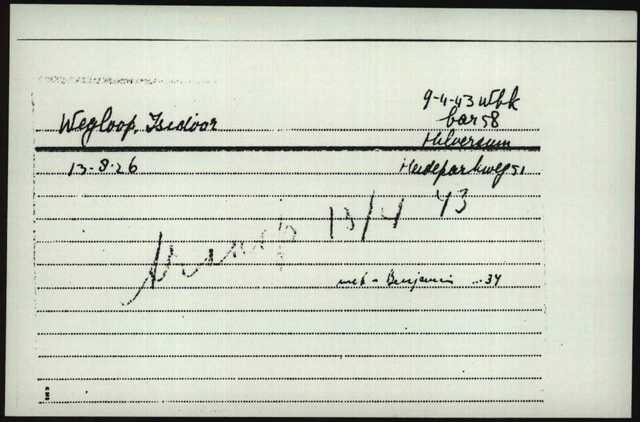 Wegloop, Isidoor
9-4-43 Wbk
bar 58
Hilversum
13-8-26
Heideparkweg 51
13/4 43
Benjamin 34